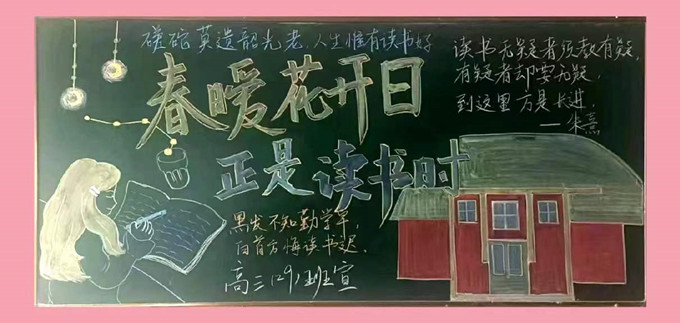 磋砣莫遗韶光老，人生惟有读书好
春暖花开日
正是读书时
读书无疑者须教有疑，
有疑者却要无疑，
到这里方是长进．
——朱熹
黑发不知勤学早，
白首方悔读书迟．
高三(29)班宣